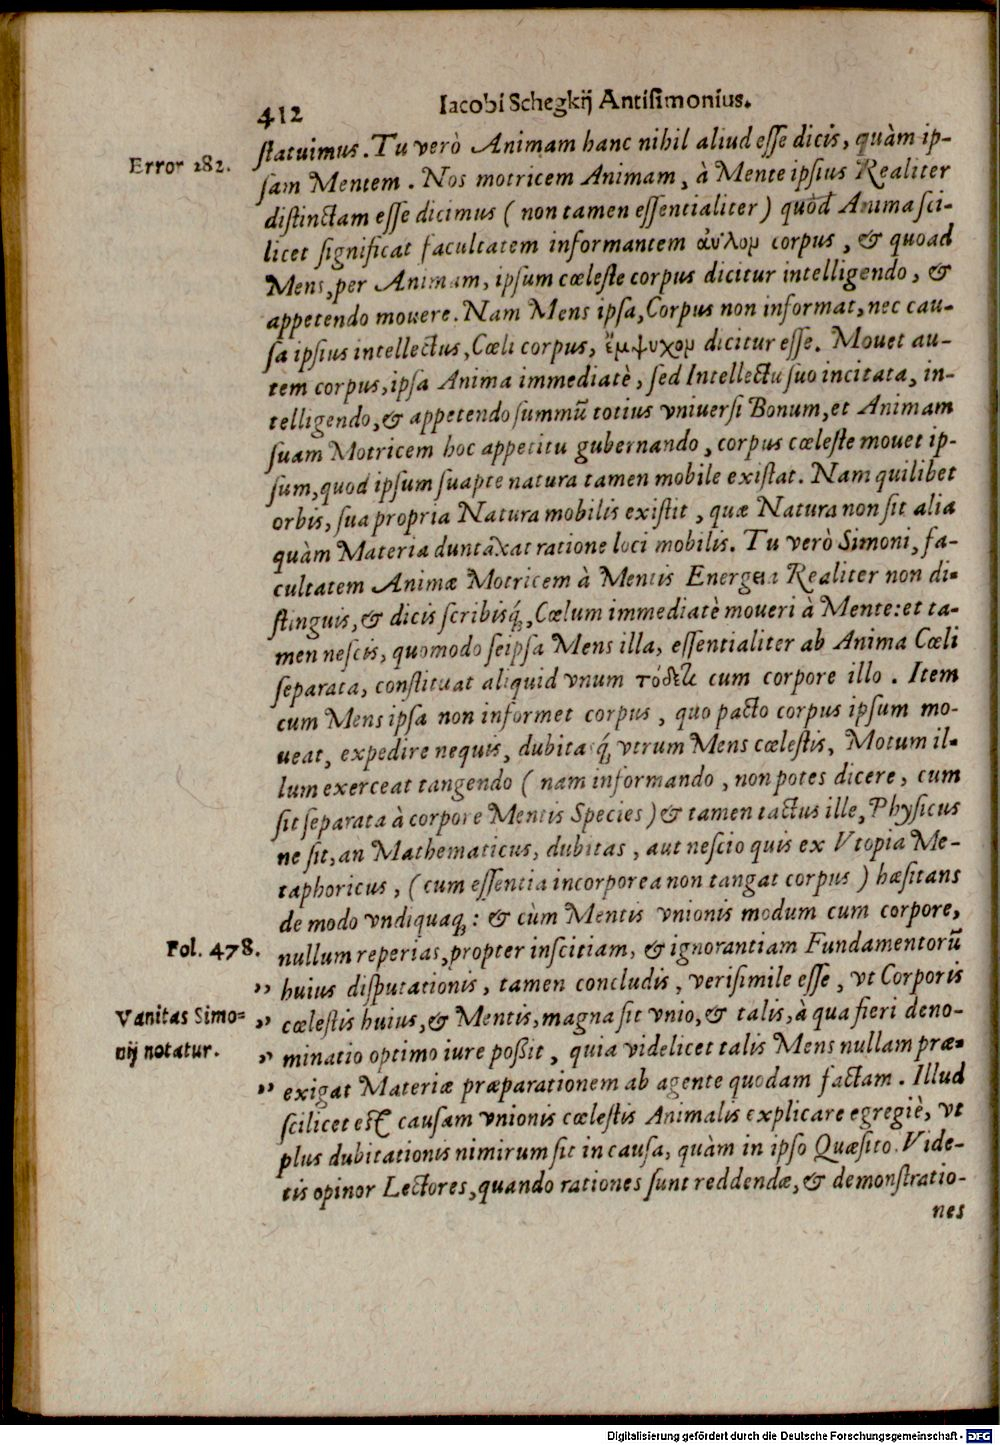 412
Iacobi Schegkij Antisimonius.
Error 282.
statuimus. Tu verò Animam hanc nihil aliud esse dicis, quàm ip-
sam Mentem. Nos motricem Animam, à Mente ipsius Realiter
distinctam esse dicimus (non tamen essentialiter) quòd Anima sci-
licet significat facultatem informantem ἀύλομ corpus, & quoad
Mens, per Animam, ipsum cœleste corpus dicitur intelligendo, &
appetendo mouere. Nam Mens ipsa, Corpus non informat, nec cau-
sa ipsius intellectus, Cœli corpus, ἔμψυχομ dicitur esse. Mouet au-
tem corpus, ipsa Anima immediatè, sed Intellectu suo incitata, in-
telligendo, & appetendo summū totius vniuersi Bonum, et Animam
suam Motricem hoc appetitu gubernando, corpus cœleste mouet ip-
sum, quod ipsum suapte natura tamen mobile existat. Nam quilibet
orbis, sua propria Natura mobilis existit, quæ Natura non sit alia
quàm Materia duntaxat ratione loci mobilis. Tu verò Simoni, fa-
cultatem Animæ Motricem à Mentis Energeia Realiter non di-
stinguis, & dicis scribisq́;, Cœlum immediatè moueri à Mente: et ta-
men nescis, quomodo seipsa Mens illa, essentialiter ab Anima Cœli
separata, constituat aliquid vnum τόδετι cum corpore illo. Item
cum Mens ipsa non informet corpus, quo pacto corpus ipsum mo-
ueat, expedire nequis, dubitasq́; vtrum Mens cœlestis, Motum il-
lum exerceat tangendo (nam informando, non potes dicere, cum
sit separata à corpore Mentis Species) & tamen tactus ille, Physicus
ne sit, an Mathematicus, dubitas, aut nescio quis ex Vtopia Me-
taphoricus, (cum essentia incorporea non tangat corpus) hæsitans
de modo vndiquaq;: & cùm Mentis vnionis modum cum corpore,
Fol. 478.
nullum reperias, propter inscitiam, & ignorantiam Fundamentorū
" huius disputationis, tamen concludis, verisimile esse, vt Corporis
Vanitas Simo-
" cœlestis huius, & Mentis, magna sit vnio, & talis, à qua fieri deno-
nij notatur.
" minatio optimo iure poßit, quia videlicet talis Mens nullam præ-
" exigat Materiæ præparationem ab agente quodam factam. Illud
scilicet est causam vnionis cœlestis Animalis explicare egregiè, vt
plus dubitationis nimirum sit in causa, quàm in ipso Quæsito. Vide-
tis opinor Lectores, quando rationes sunt reddendæ, & demonstratio-
nes
Digitalisierung gefördert durch die Deutsche Forschungsgemeinschaft - DFG